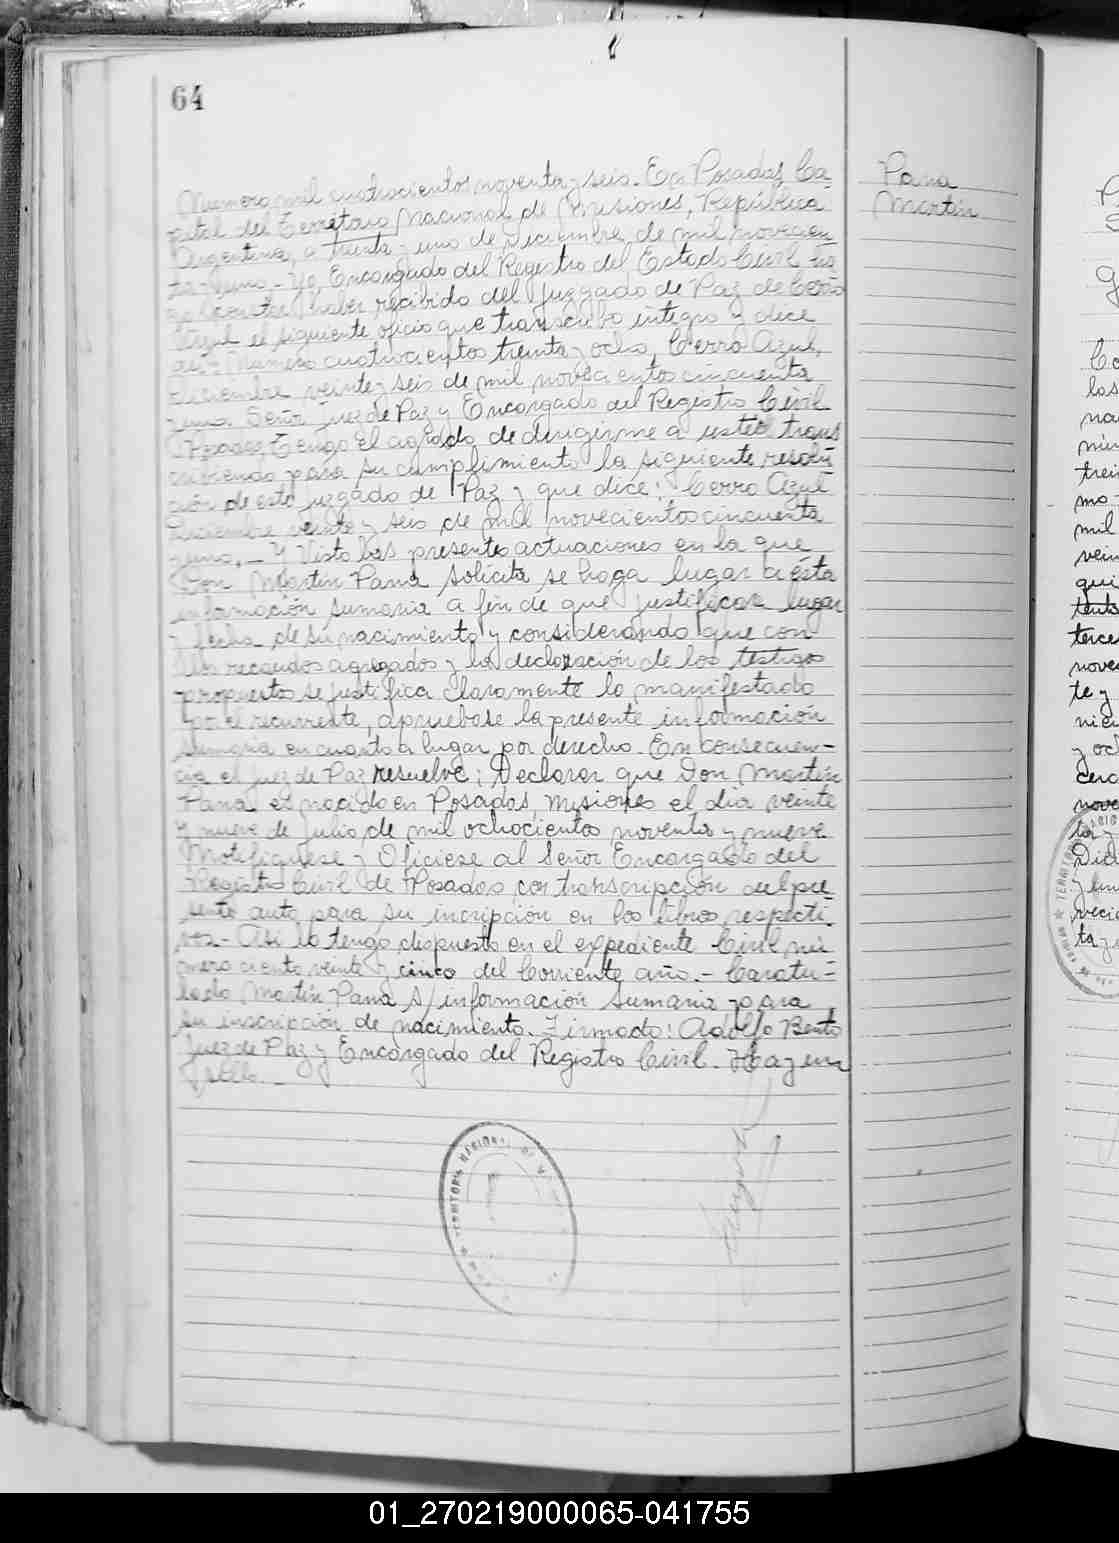 64
Numero mil cuatrocientos noventa y seis. En Posadas, Ca-
pital del Territorio Nacional de Misiones, República
Argentina, a treinta y uno de Diciembre de mil novecien
tos uno. - Yo, Encargado del Registro del Estado Civil ha
go constar haber recibido del Juzgado de Paz de Cerro
Azul el siguiente oficio que transcribo integro y dice
asi - Numero cuatrocientos treinta y ocho, Cerro Azul,
Diciembre veinte y seis de mil novecientos cincuenta
y uno. Señor Juez de Paz y Encargado del Registro Civil
Posadas, Tengo el agrado de dirigirme a usted trans
cribiendo para su cumplimiento la siguiente resolu
ción de este juzgado de Paz y que dice: Cerro Azul
Diciembre veinte y seis de mil novecientos cincuenta
y uno. - Y Visto las presentes actuaciones en la que
Don Martín Pana solicita se haga lugar a ésta
información sumaria a fin de que justificar lugar
y fecha de su nacimiento y considerando que con
los recaudos agregados y la declaración de los testigos
propuestos se justifica claramente lo manifestado
por el recurrente, apruebase la presente información
sumaria en cuanto a lugar por derecho. En consecuen-
cia el juez de Paz resuelve: Declarar que Don Martín
Pana es nacido en Posadas, Misiones el día veinte
y nueve de julio de mil ochocientos noventa y nueve
Notifiquese y Oficiese al Señor Encargado del
Registro Civil de Posadas con transcripción del pre
sente auto para su incripción en los libros respecti-
vos - Asi lo tengo dispuesto en el expediente Civil nú
mero ciento veinte y cinco del Corriente año. - Caratu-
lado Martín Pana S/ información sumaria para
su inscripción de nacimiento. Firmado: Adolfo Bento
Juez de Paz y Encargado del Registro Civil. Hay un
sello. -
Pana
Martín
TERRITORIO NACIONAL DE
01_270219000065-041755